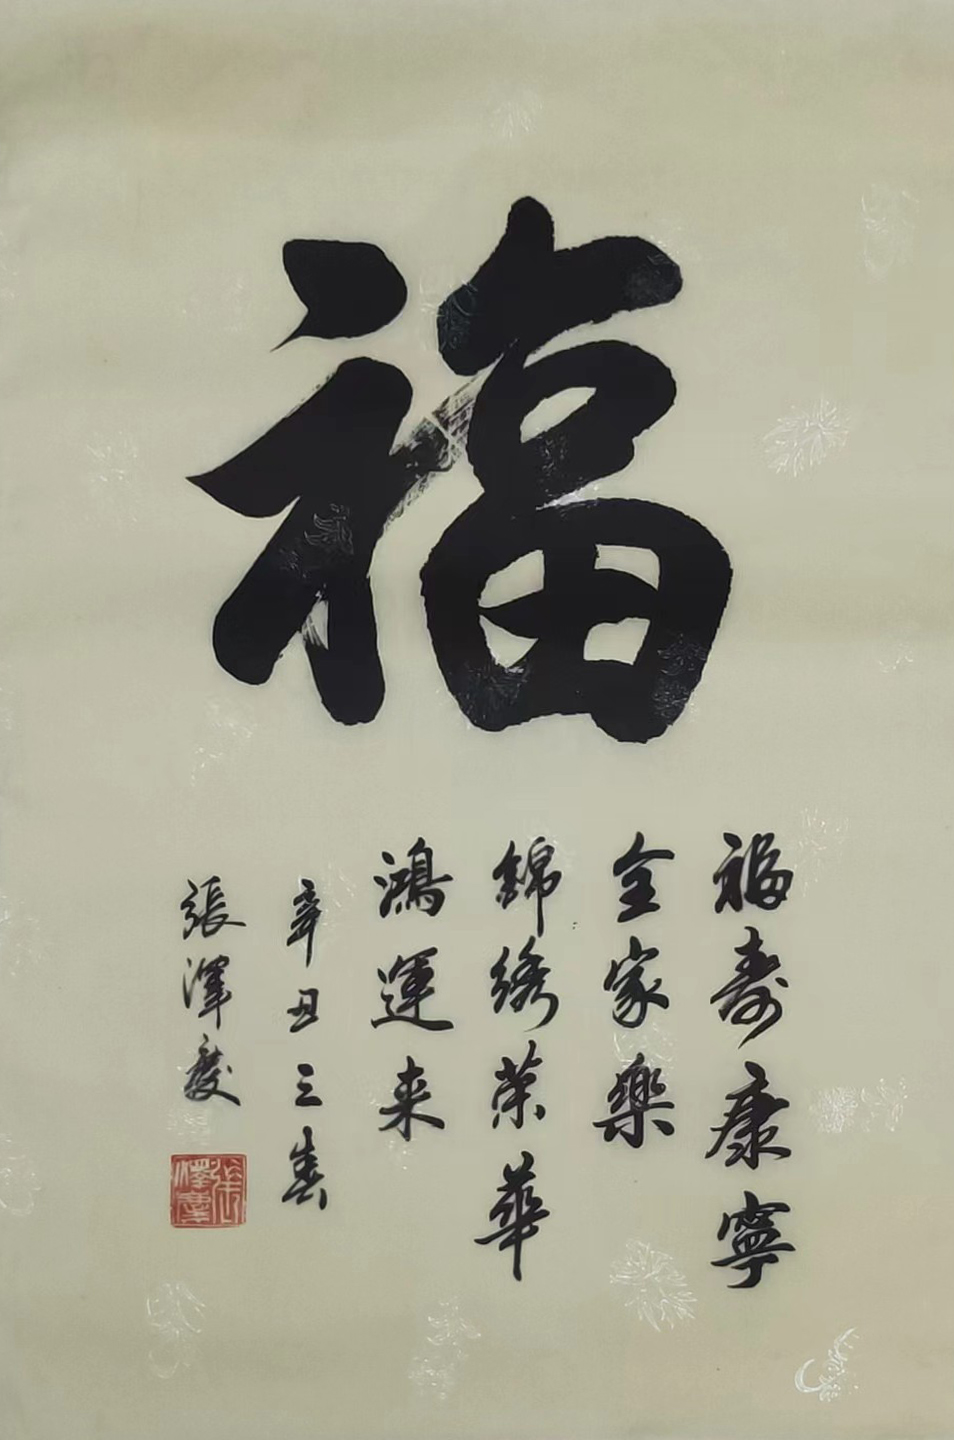 福
福壽康寧
全家樂
錦绣荣華
鴻運来
辛丑三春
張澤慶
張澤慶